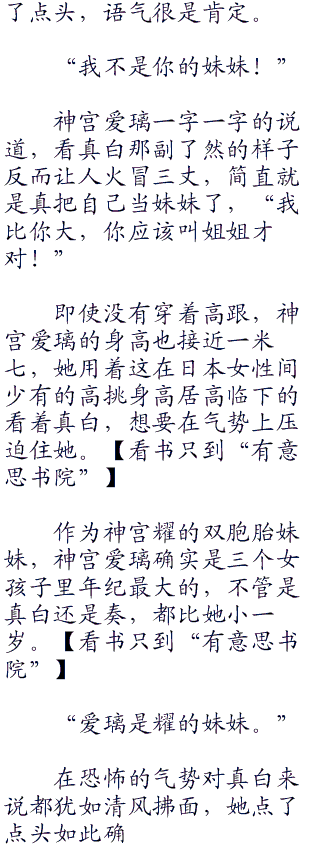 了点头，语气很是肯定。
“我不是你的妹妹！”
神宫爱璃一字一字的说
道，看真白那副了然的样子
反而让人火冒三丈，简直就
是真把自己当妹妹了，“我
比你大，你应该叫姐姐才
对！”
即使没有穿着高跟，神
宫爱璃的身高也接近一米
七，她用着这在日本女性间
少有的高挑身高居高临下的
看着真白，想要在气势上压
迫住她。【看书只到“有意
思书院”】
作为神宫耀的双胞胎妹
妹，神宫爱璃确实是三个女
孩子里年纪最大的，不管是
真白还是奏，都比她小一
岁。【看书只到“有意思书
院”】
“爱璃是耀的妹妹。”
在恐怖的气势对真白来
说都犹如清风拂面，她点了
点头如此确